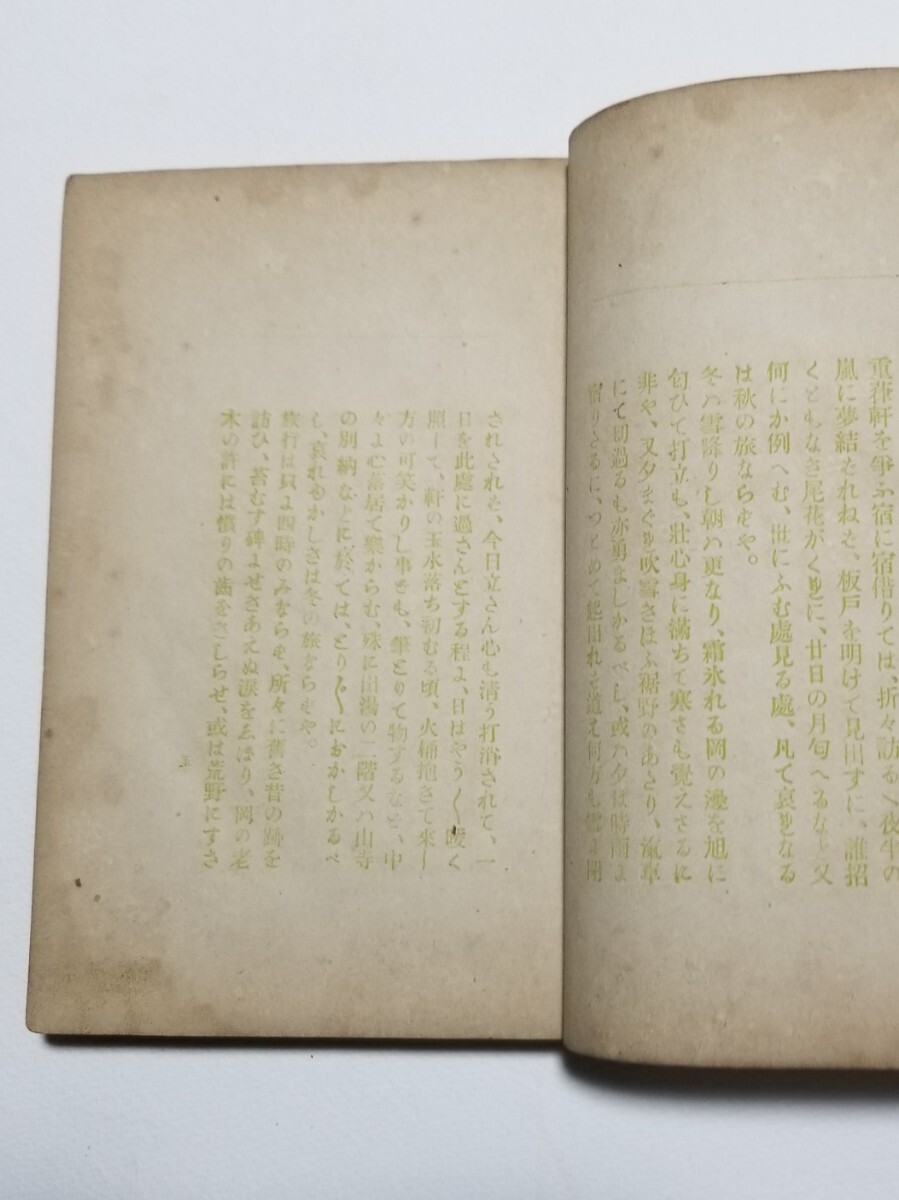 重葎軒を爭ふ宿に宿借りては、折々訪るゝ夜半の
嵐に夢結ばれねば、板戸を明けて見出すに、誰招
くともなき尾花がくれに、廿日の月匂へるなど又
何にか例へむ、世にふむ處見る處、凡て哀れなる
は秋の旅ならずや。
冬ハ雪降りし朝ハ更なり、霜氷れる岡の邊を旭に
匂ひて打立も、壯心身に滿ちて寒さも覺えざるに
非や、又夕まぐれ吹雪さほふ裾野のあたり、汽車
にて切過るも亦勇ましかるべし、或ハ夕は時雨に
宿りたるに、つとめて起出れば道え何方も雪に閉
されされば、今日立さん心も淸う打消されて、一
日を此處に過さんとする程よ、日はやう〳〵暖く
照して、軒の玉水落ち初むる頃、火桶抱きて來し
方の可笑かりし事ども、筆とりて物するなど、中
々よ心落居て樂からむ、殊に出湯の二階又ハ山寺
の別納などに於ては、とり〴〵におかしかるべ
し、哀れもかしさは冬の旅ならずや。
旅行は只よ四時のみならず、所々に舊き昔の跡を
訪ひ、苔むす碑よせきあえぬ淚をゑぼり、岡の老
木の許には憤りの齒をきしらせ、或は荒野にすき
五